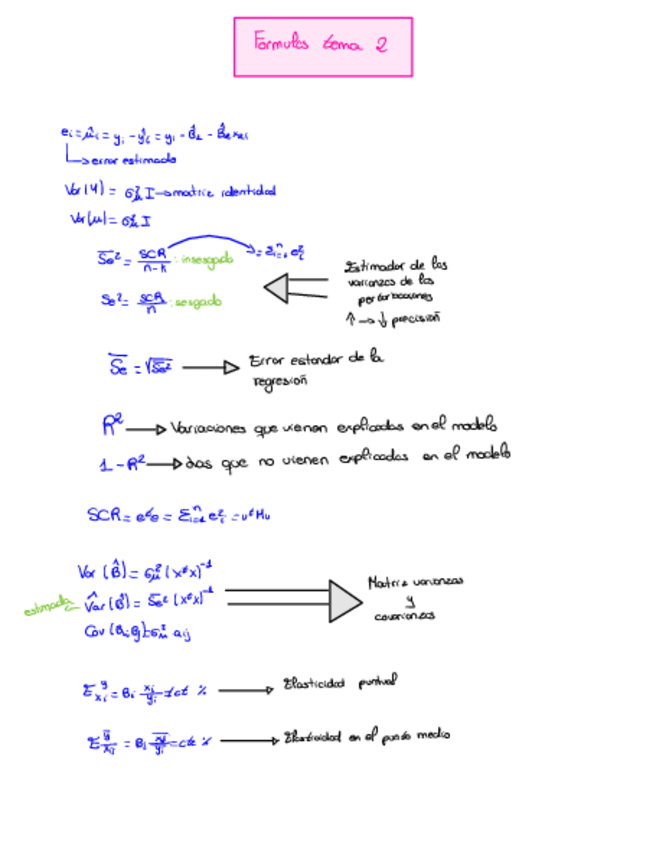 Fórmulas tema 2
eᵢ = μ̂ᵢ = yᵢ - ŷᵢ = yᵢ - β̂₁ - β̂₂x₂ᵢ
↳ error estimado
Var(Y) = σ²μ I → matriz identidad
Var(μ) = σ²μ I
S̅e² = SCR / n-k : insesgado → = Σⁿᵢ₌₁ eᵢ²
Se² = SCR / n : sesgado
Estimador de las
varianzas de las
perturbaciones
↑ → ↓ precisión
S̅e = √S̅e² → Error estandar de la
regresión
R² → Variaciones que vienen explicadas en el modelo
1 - R² → Las que no vienen explicadas en el modelo
SCR = eᵗe = Σⁿᵢ₌₁ eᵢ² = uᵗMu
Var(β̂) = σ²μ (xᵗx)⁻¹
estimada V̂ar(β̂) = S̅e² (xᵗx)⁻¹
Matriz varianzas
y
covarianzas
σ²μ aij
Elasticidad puntual
Elasticidad en el punto medio